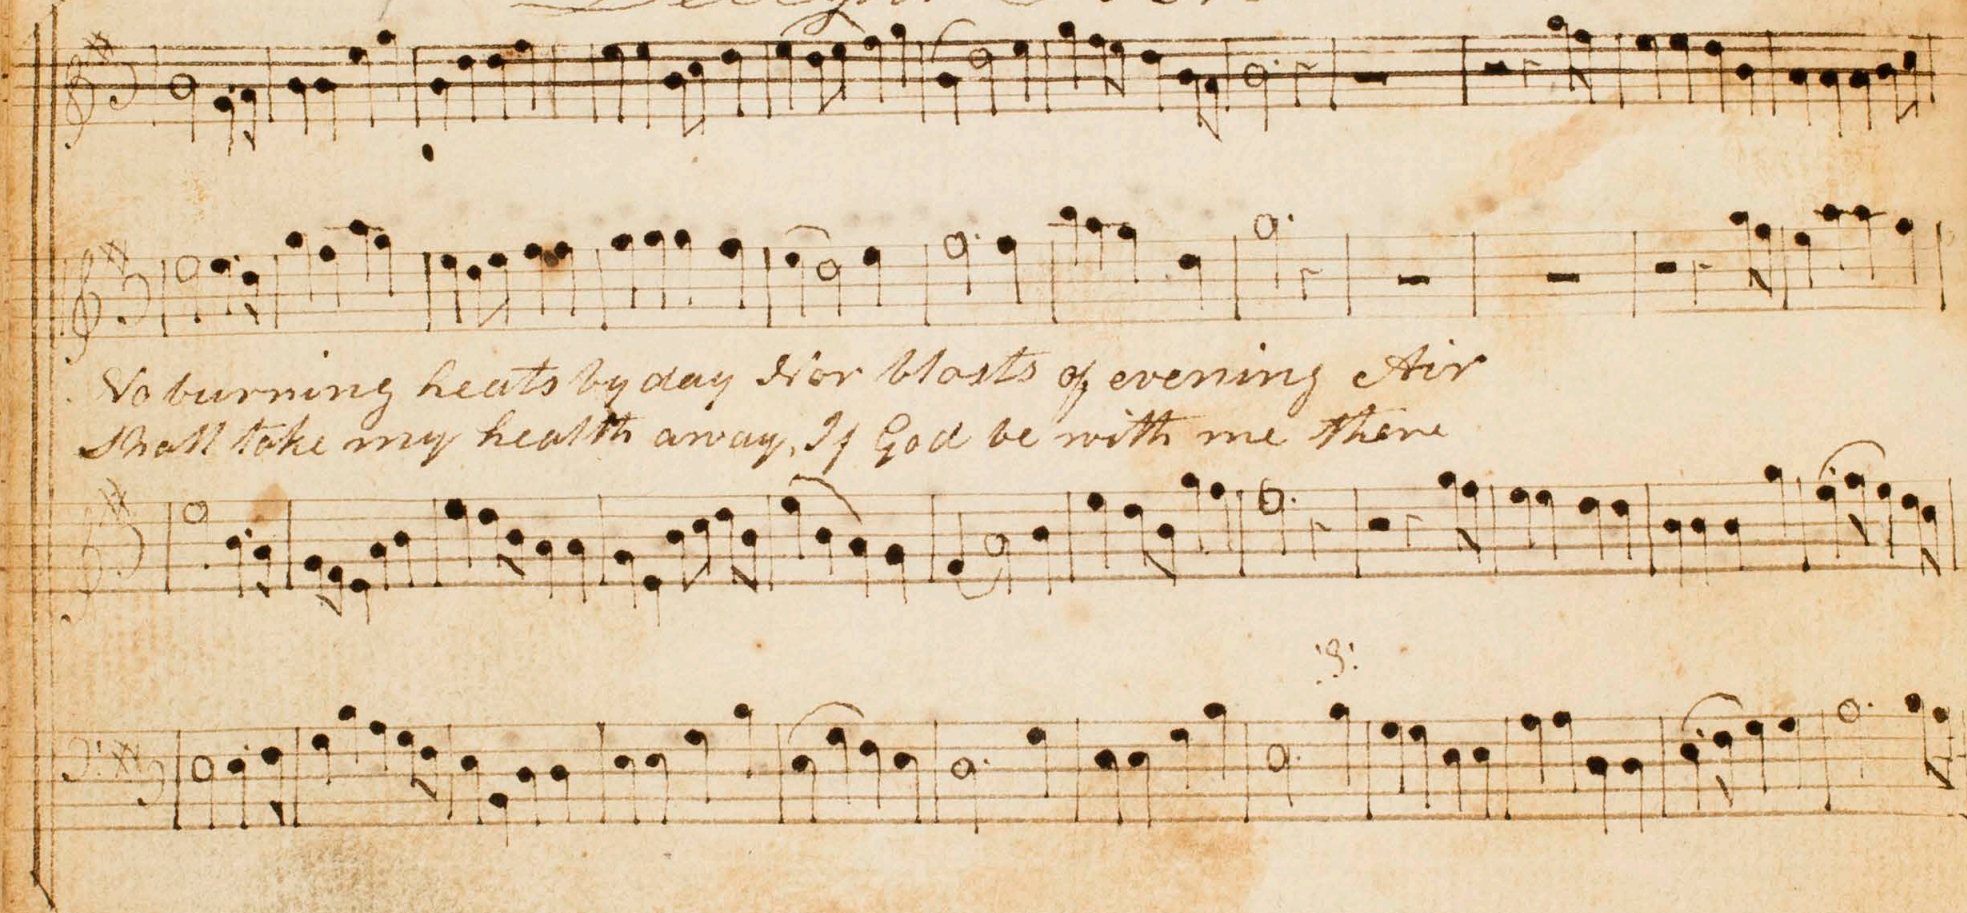 No burning heats by day Nor blasts of evening Air
Shall take my health away, If God be with me there
:S: